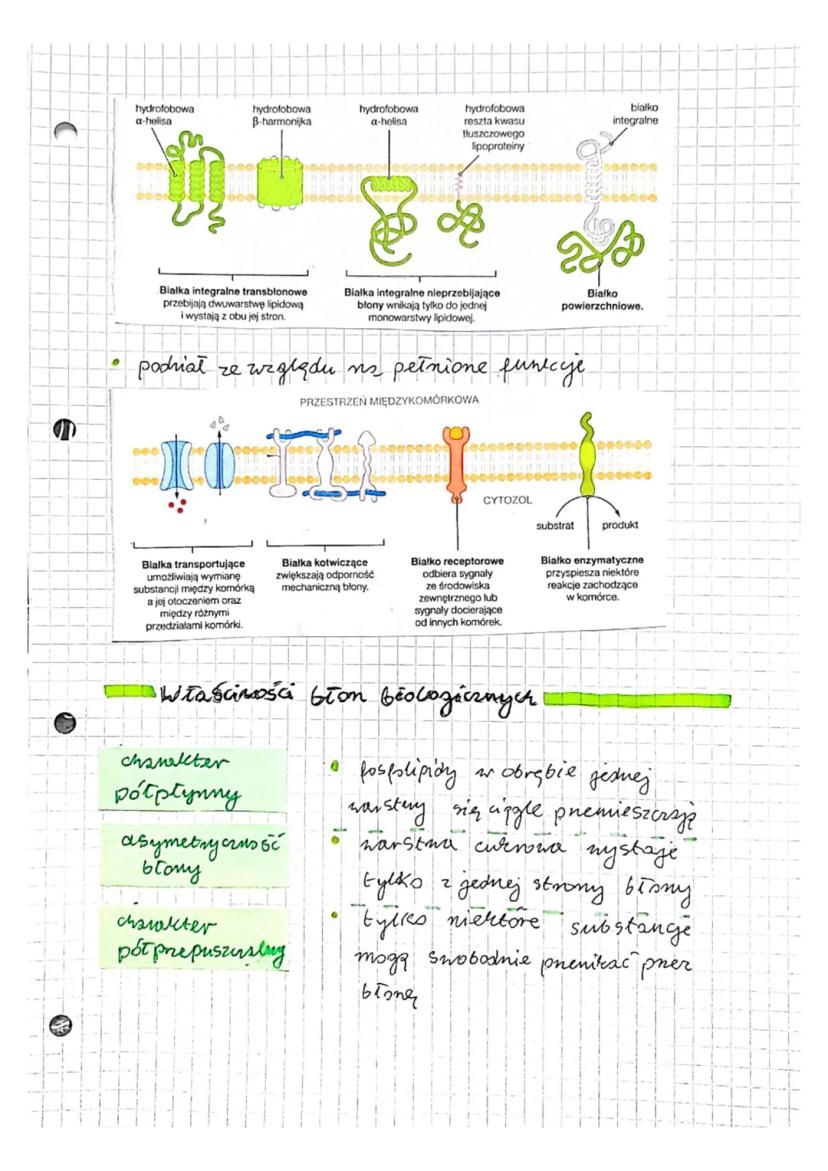 hydrofobowa
α-helisa
hydrofobowa
β-harmonijka
hydrofobowa
α-helisa
hydrofobowa
reszta kwasu
tłuszczowego
lipoproteiny
białko
integralne
Białka integralne transbłonowe
przebijają dwuwarstwę lipidową
i wystają z obu jej stron.
Białka integralne nieprzebijające
błony wnikają tylko do jednej
monowarstwy lipidowej.
Białko
powierzchniowe.
• podział ze względu na pełnione funkcje
PRZESTRZEŃ MIĘDZYKOMÓRKOWA
CYTOZOL
substrat
produkt
Białka transportujące
umożliwiają wymianę
substancji między komórką
a jej otoczeniem oraz
między różnymi
przedziałami komórki.
Białka kotwiczące
zwiększają odporność
mechaniczną błony.
Białko receptorowe
odbiera sygnały
ze środowiska
zewnętrznego lub
sygnały docierające
od innych komórek.
Białko enzymatyczne
przyspiesza niektóre
reakcje zachodzące
w komórce.
Właściwości błon biologicznych
charakter
półpłynny
• fosfolipidy w obrębie jednej
warstwy się ciągle przemieszczają
asymetryczność
błony
• warstwa cukrowa wystaje
tylko z jednej strony błony
charakter
półprzepuszczalny
• tylko niektóre substancje
mogą swobodnie przenikać przez
błonę